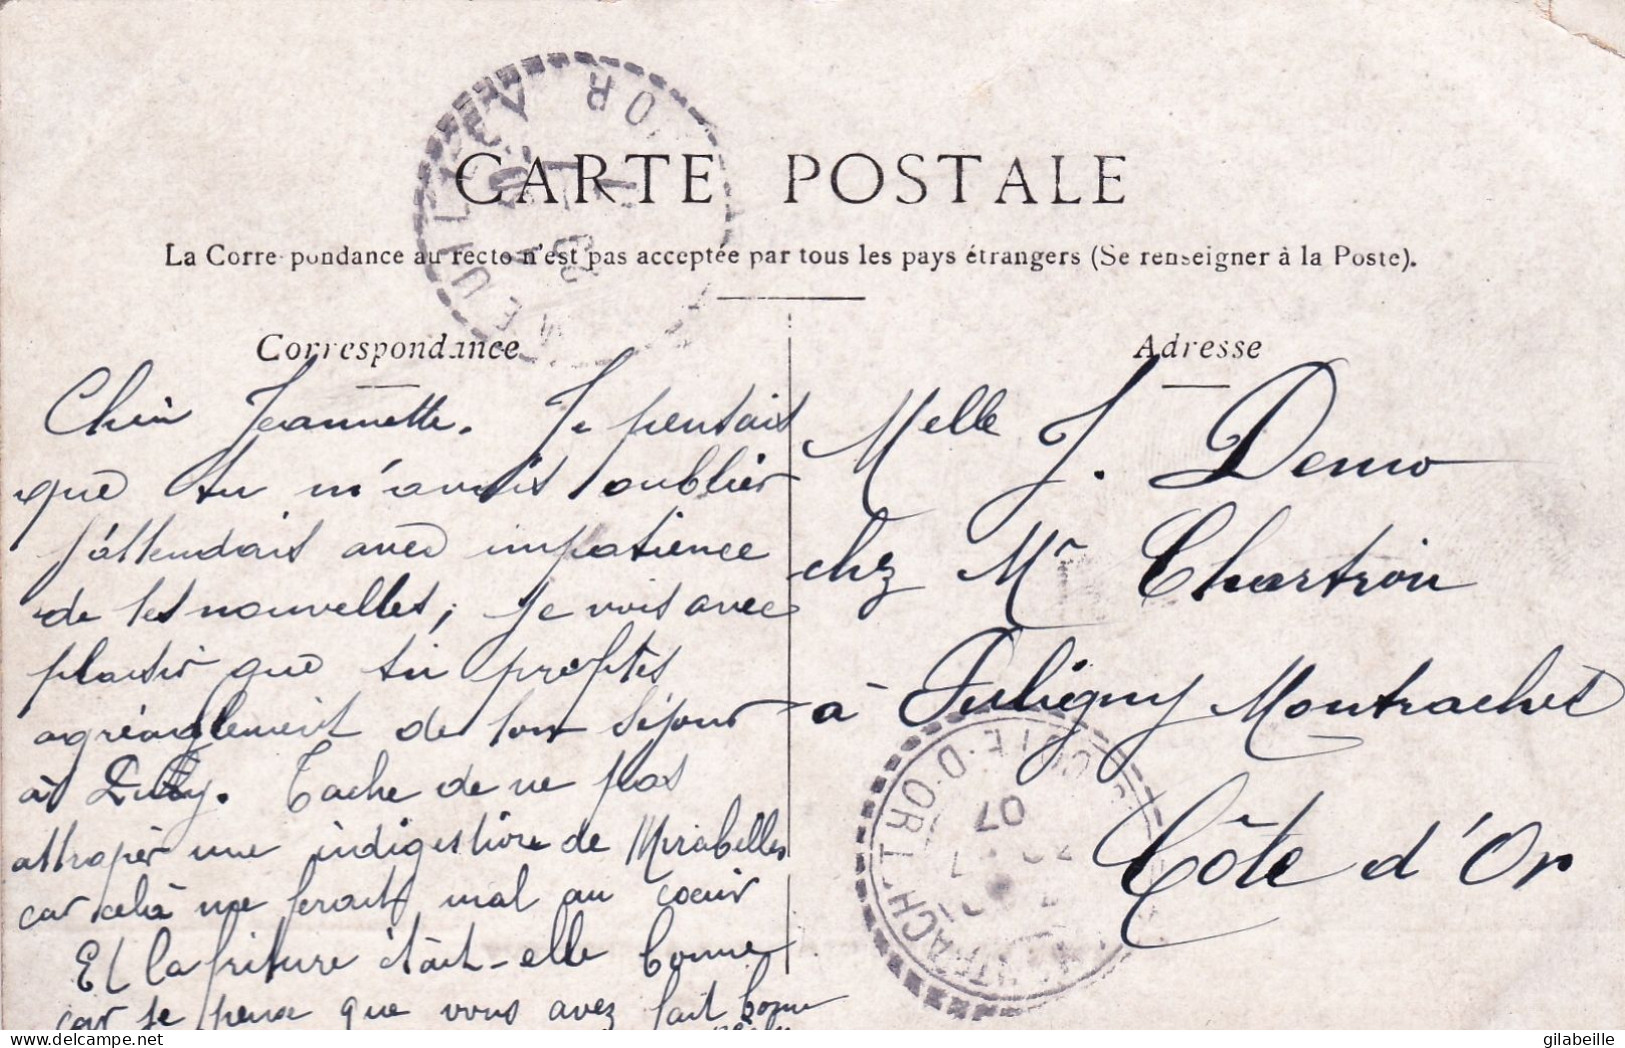 CARTE POSTALE
La Correspondance au recto n'est pas acceptée par tous les pays étrangers (Se renseigner à la Poste).
Correspondance
Chèr Jeannette. Je pensais
que tu m'avais oublier
j'attendais avec impatience
de tes nouvelles, je vois avec
plaisir que tu profites
agréablement de ton séjour
à . Tache de ne pas
attraper une indigestion de Mirabelles
car celà me ferait mal au coeur
Et la friture était-elle bonne
car je pense que vous avez fait bonne
pêche
Adresse
Melle J. Demo
chez Mr Chartron
à Puligny Montrachet
Côte d'Or
MEURSAULT
OR
MONTRACHET
COTE-D'OR
07
delcampe.net
gilabeille